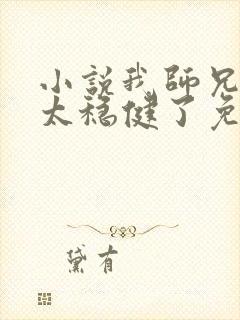 小説我師兄
太穩健了免
黛有